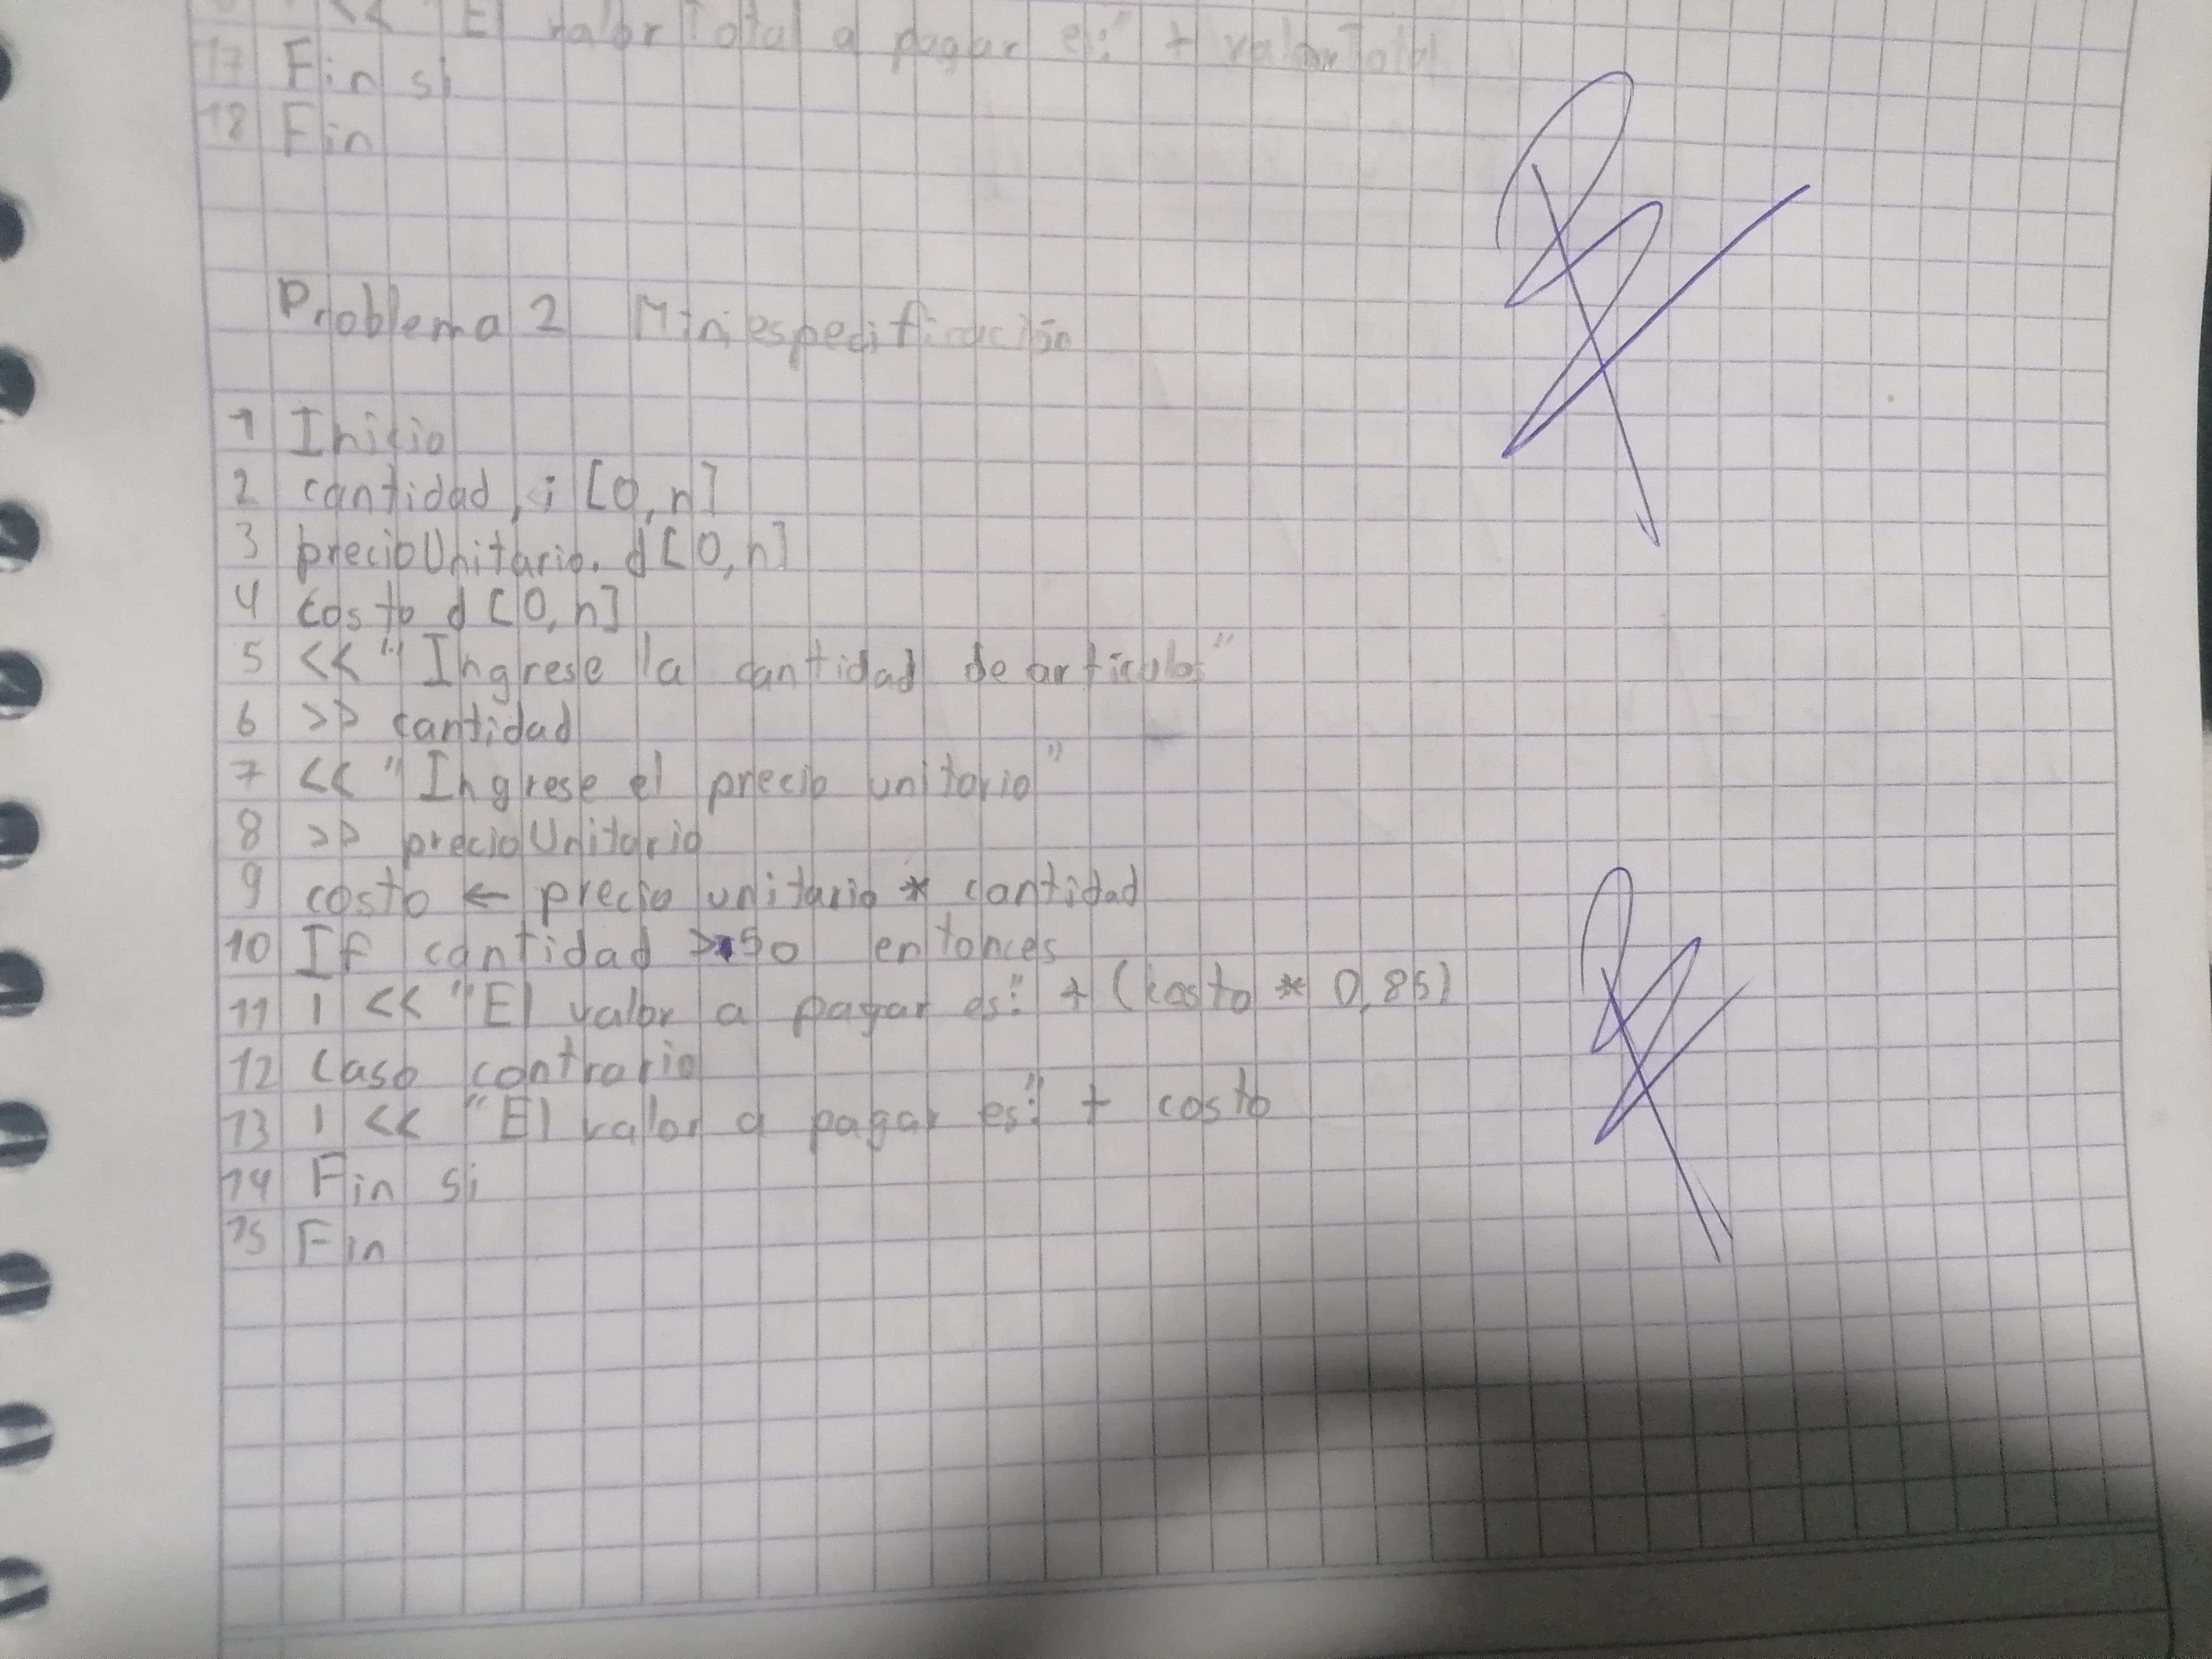 << "El valor Total a pagar es:" + valorTotal
17 Fin si
18 Fin
Problema 2 Miniespecificación
1 Inicio
2 cantidad, i [0,n]
3 precioUnitario. d[0,n]
4 costo d [0,n]
5 << "Ingrese la cantidad de artículos"
6 >> cantidad
7 << "Ingrese el precio unitario"
8 >> precioUnitario
9 costo ← precio unitario * cantidad
10 If cantidad > 50 entonces
11 | << "El valor a pagar es:" + (costo * 0,85)
12 Caso contrario
13 | << "El valor a pagar es:" + costo
14 Fin si
15 Fin